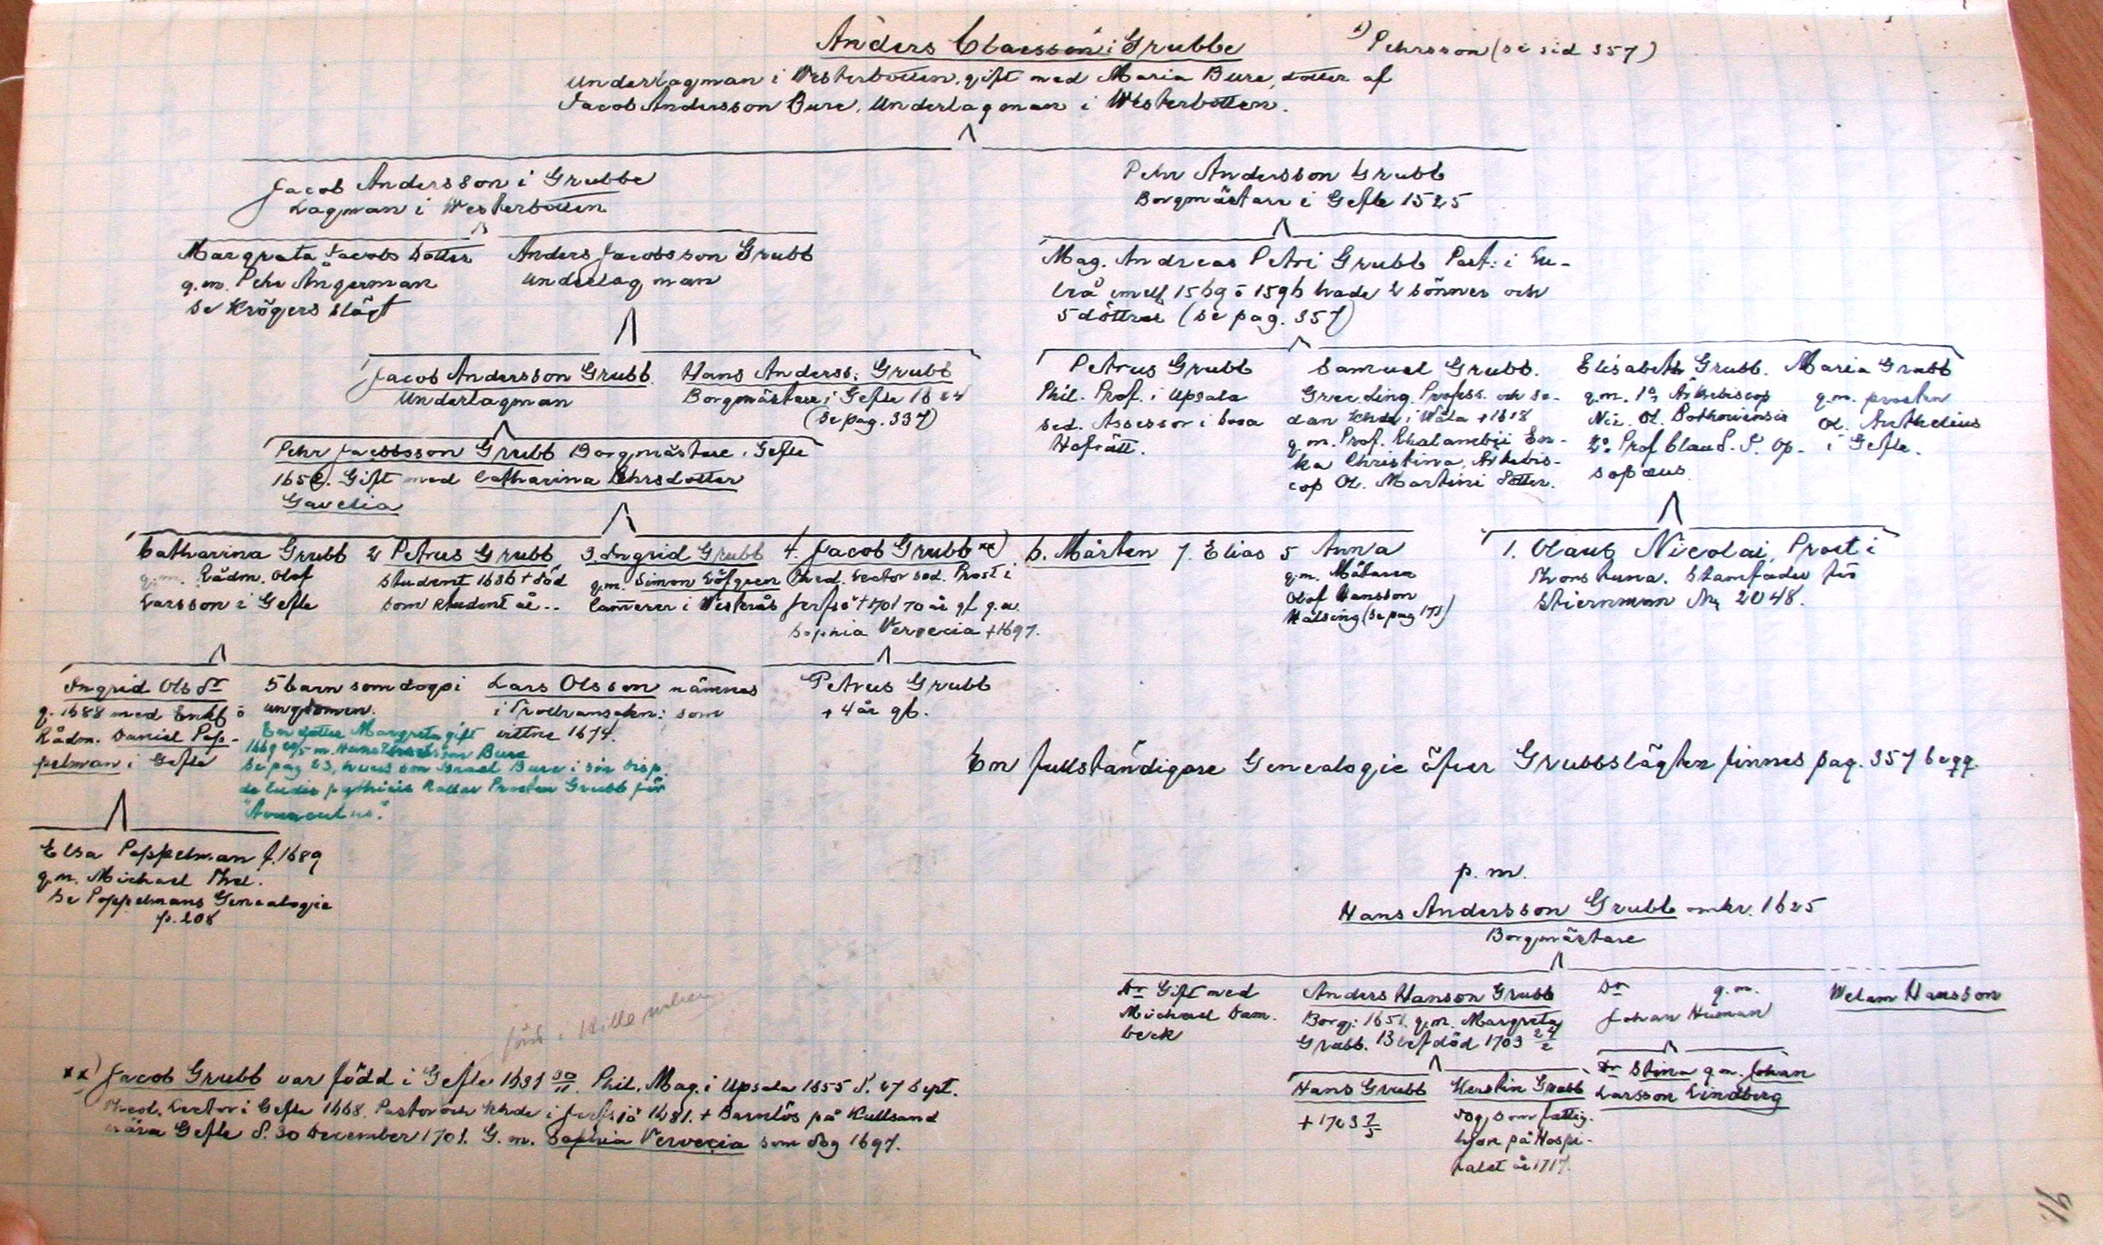 Anders Claesson i Grubbe
1) Pehrsson (se sid 357)
Underlagman i Westerbotten, gift med Maria Bure, dotter af
Jacob Andersson Bure, Underlagman i Westerbotten.
Jacob Andersson i Grubbe
Lagman i Westerbotten
Pehr Andersson Grubb
Borgmästare i Gefle 1525
Margreta Jacobs Dotter
g.m. Pehr Ångerman
se Krögers slägt
Anders Jacobsson Grubb
Underlagman
Mag. Andreas Petri Grubb Past: i Lu-
leå emell 1569 o 1596 hade 2 sönner och
5 döttrar (se pag. 357)
Jacob Andersson Grubb
Underlagman
Hans Anderss. Grubb
Borgmästare i Gefle 1624
(se pag. 337)
Petrus Grubb
Phil. Prof. i Upsala
sed. Assessor i
Hofrätt.
Samuel Grubb.
Profess. och se-
dan Khde i Wåla +1618
g.m. Prof. En-
ka Christina, Ärkebis-
cop Ol. Martini Dotter.
Elisabeth Grubb.
g.m. 1o, Ärkebiscop
Nic. Ol. Bothniensis
2o Prof Claud. S. Op-
sopæus.
Maria Grubb
g.m. prosten
Ol. Anthelius
i Gefle.
Pehr Jacobsson Grubb Borgmästare i Gefle
Gift med Catharina Pehrsdotter
Gavelia
Catharina Grubb
g.m. Rådm. Olof
Larsson i Gefle
2 Petrus Grubb
student 1636 + död
som student år..
3. Ingrid Grubb
g.m. Simon Löfgren
Camerer i Westerås
4. Jacob Grubb xx)
Theol. Lector sed. Prost i
Jerfsö +1701 70 år gl g.m.
Sophia Ververia +1697.
6. Mårten
7. Elias
5 Anna
g.m. Målaren
Olof Hansson
Hälsing (se pag 173)
1. Olaus Nicolai, Prost i
Thorstuna. Stamfader för
Stiernman No 2048.
Ingrid Ols Dr
g. 1688 med Enkl o
Rådm. Daniel Pop-
pelman i Gefle
5 barn som dogo i
ungdomen.
Lars Olsson nämnes
i Trolleransakn: som
vittne 1674.
Petrus Grubb
+ 4 år gl.
En dotter Margreta gift
1669 m. Hans Bure
se pag 23, hvars son Israel Bure i sin Disp
de ludis pythiciis kallar Prosten Grubb för
"Avunculus".
En fullständigare Genealogie öfver Grubbslägten finnes pag. 357 begg.
Elsa Poppelman f. 1689
g.m. Michael Thel.
se Poppelmans Genealogie
p. 208
p. m.
Hans Andersson Grubb omkr. 1625
Borgmästare
Dr Gift med
Michael Dam.
beck
Anders Hanson Grubb
Borg: 1651. g.m. Margreta
Grubb. död 1703
Dr g.m.
Johan Human
Welam Hansson
Hans Grubb
+ 1703 7/5
Kerstin Grubb
dog som fattig-
hjon på Hospi-
talet år 1717.
Dr Stina g.m. Johan
Larsson Lindberg
xx) Jacob Grubb var född i Gefle 1631 30/11 Phil. Mag. i Upsala 1655 d. 27 Sept.
Theol. Lector i Gefle 1668. Pastor och Khde i Jerfsjö 1681. + Barnlös på Kullsand
nära Gefle d. 30 December 1701. G.m. Sophia Ververia som dog 1697.
91.